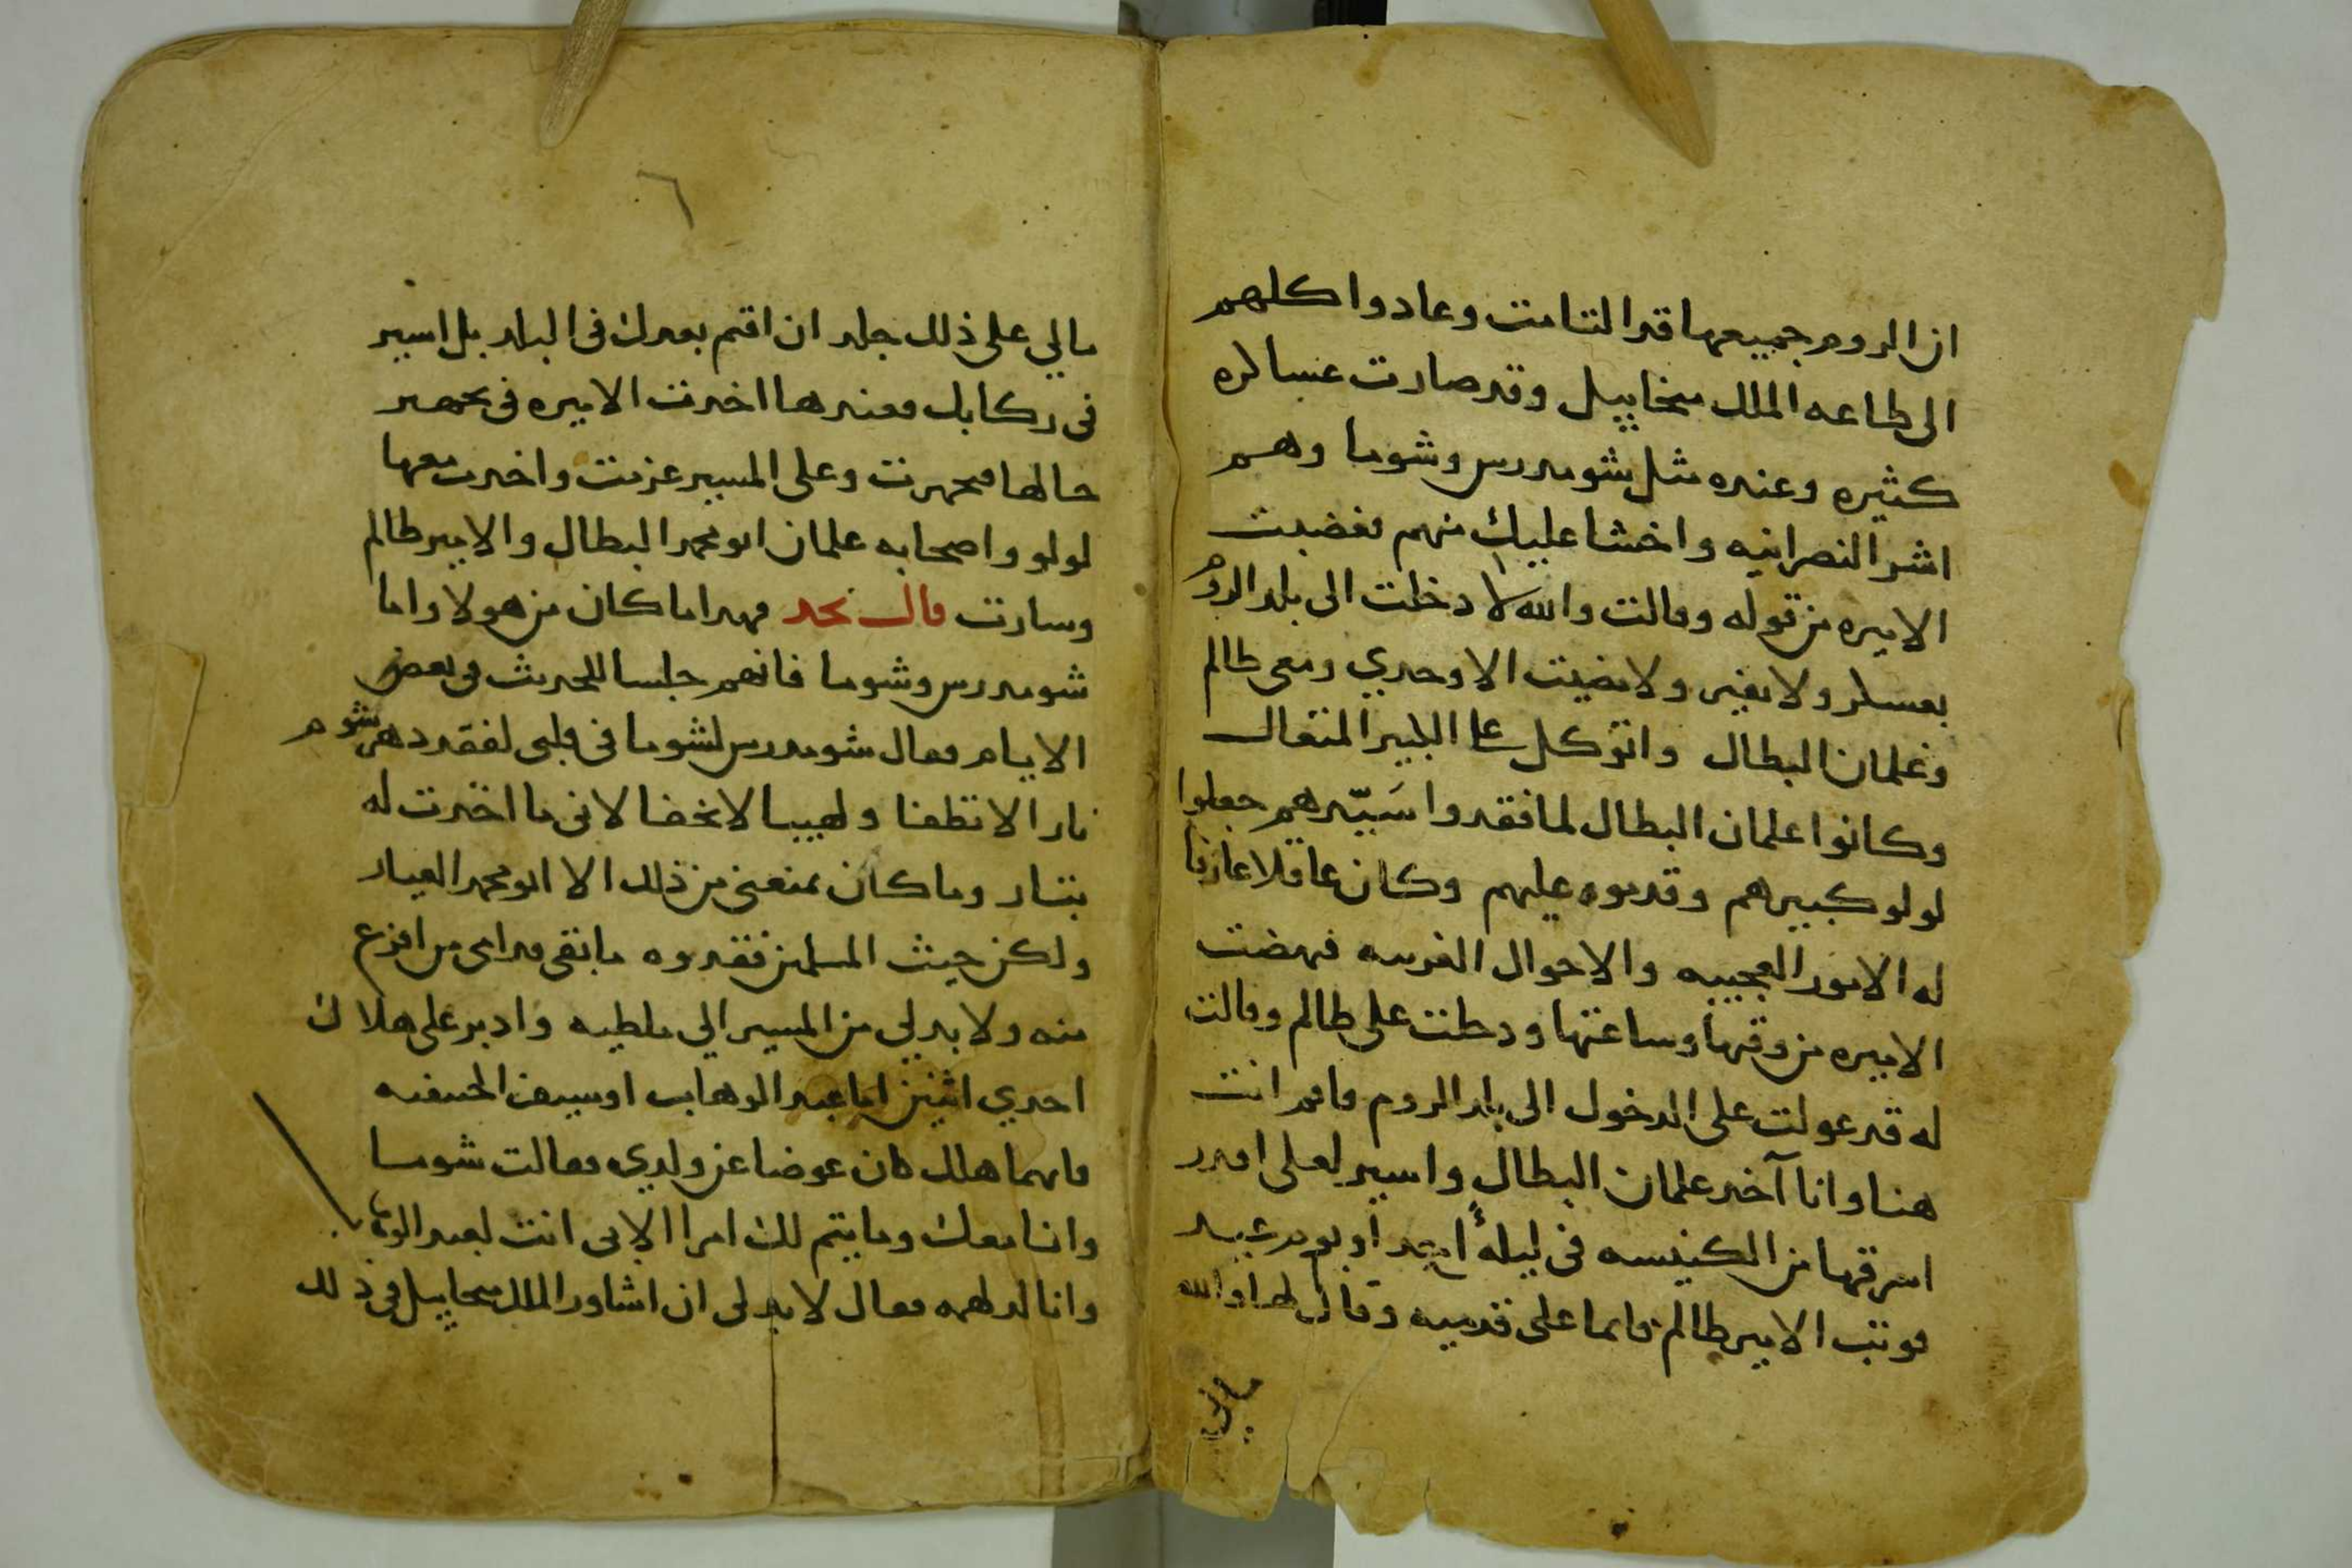 ان الروم جميعها قد التامت وعادوا كلهم
الى طاعه الملك ميخاييل وقد صارت عساكره
كثيره وعنده مثل شومدرس وشوما وهم
اشر النصرانيه واخشا عليك منهم فغضبت
الاميره من قوله وقالت والله لا دخلت الى بلد الروم
بعسكر ولا بغيره ولا مضيت الا وحدي ومعى ظالم
وغلمان البطال واتوكل على الكبير المتعال
وكانوا غلمان البطال لما فقدوا سَيّدهم جعلوا
لولو كبيرهم وقدموه عليهم وكان عاقلا عارفا
له الامور العجيبه والاحوال الغريبه فنهضت
الاميره من وقتها وساعتها ودخلت على ظالم وقالت
له قد عولت على الدخول الى بلد الروم فاقم انت
هنا وانا آخد غلمان البطال واسير لعلى اقدر
اسرقها من الكنيسه فى ليلة احد او يوم عيد
فوثب الامير ظالم قايما على قدميه وقال لها والله
مالي
٦
مالي على ذلك جلد ان اقيم بعدك فى البلد بل اسير
فى ركابك فعندها اخدت الاميره فى تجهيز
حالها فتجهزت وعلى المسير عزمت واخدت معها
لولو واصحابه غلمان ابو محمد البطال والامير ظالم
وسارت قال نجد فهدا ما كان من هولا واما
شومدرس وشوما فانهم جلسا للحديث فى بعض
الايام فقال شومدرس لشوما فى قلبى لفقد دهرشوم
نار لا تطفا ولهيبا لا يخفا لانى ما اخدت له
بتار وما كان يمنعنى من ذلك الا ابو محمد العيار
ولكن حيث المسلمين فقدوه ما بقى قدامى من افزع
منه ولا بد لي من المسير الي ملطيه وادبر على هلاك
احدي اثنين اما عبد الوهاب او سيف الحنيفيه
فايهما هلك كان عوضا عن ولدي فقالت شوما
وانا معك وما يتم لك امرا الا بى انت لعبد الوهاب
وانا لدلهمه فقال لا بد لى ان اشاور الملك ميخاييل فى ذلك